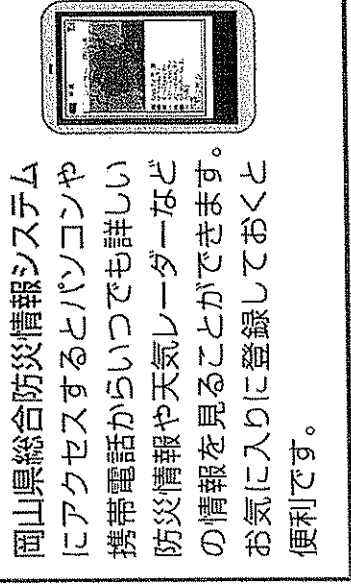 岡山県総合防災情報システム
にアクセスするとパソコンや
携帯電話からいつでも詳しい
防災情報や天気レーダーなど
の情報を見ることができます。
お気に入りに登録しておくと
便利です。